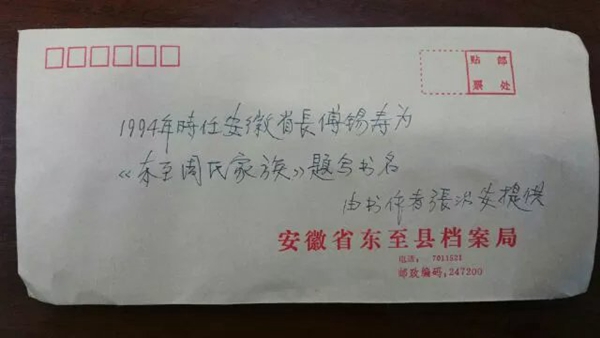 贴 邮
票 处
1994年時任安徽省長傅锡寿为
《东至周氏家族》題写书名
由书作者張 安提供
安徽省东至县档案局
电话: 7011521
邮政编码,247200